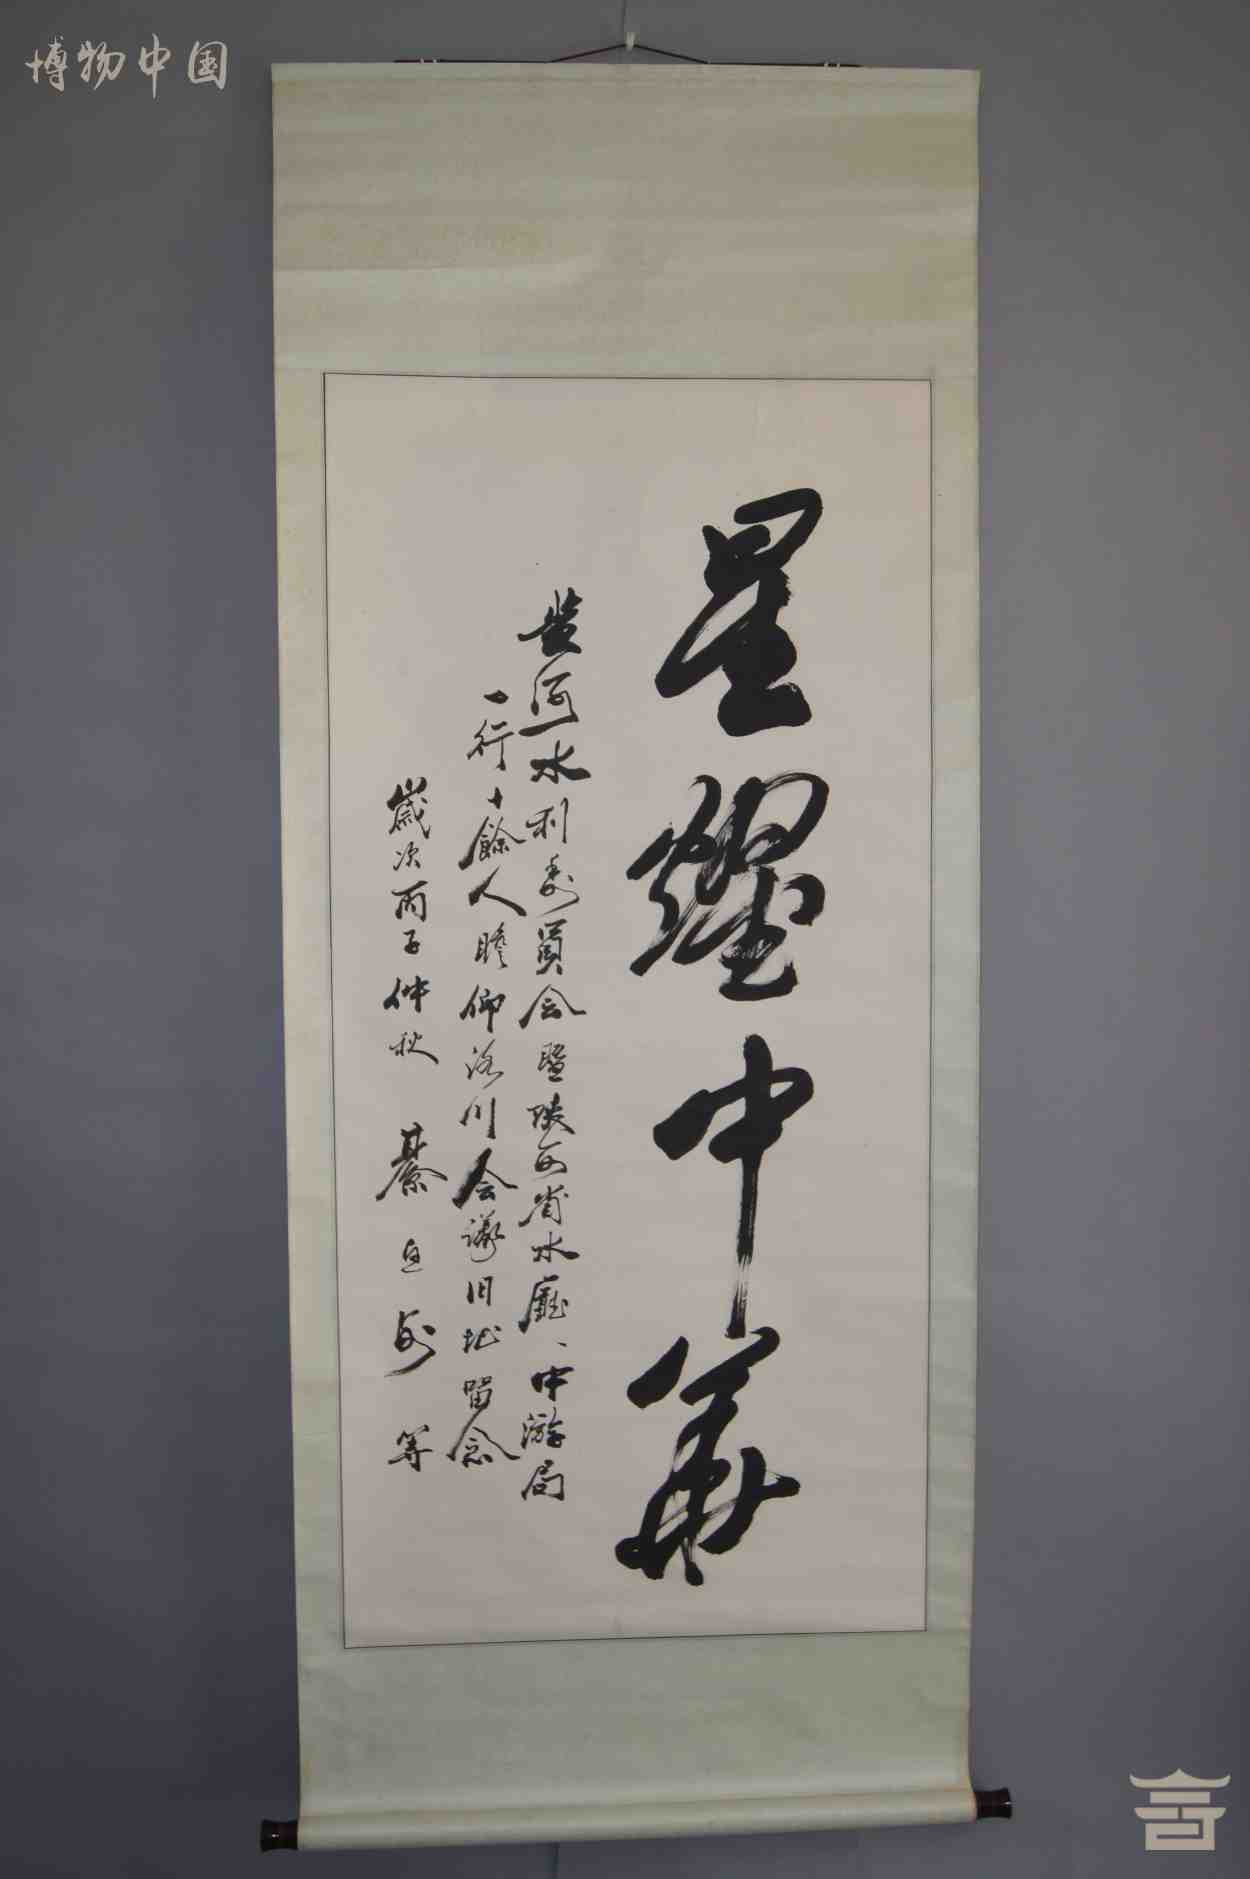 博物中国
星耀中华
黄河水利委員会暨陕西省水廳、中游局
一行十餘人瞻仰洛川会議旧址留念
歲次丙子仲秋 綦
等